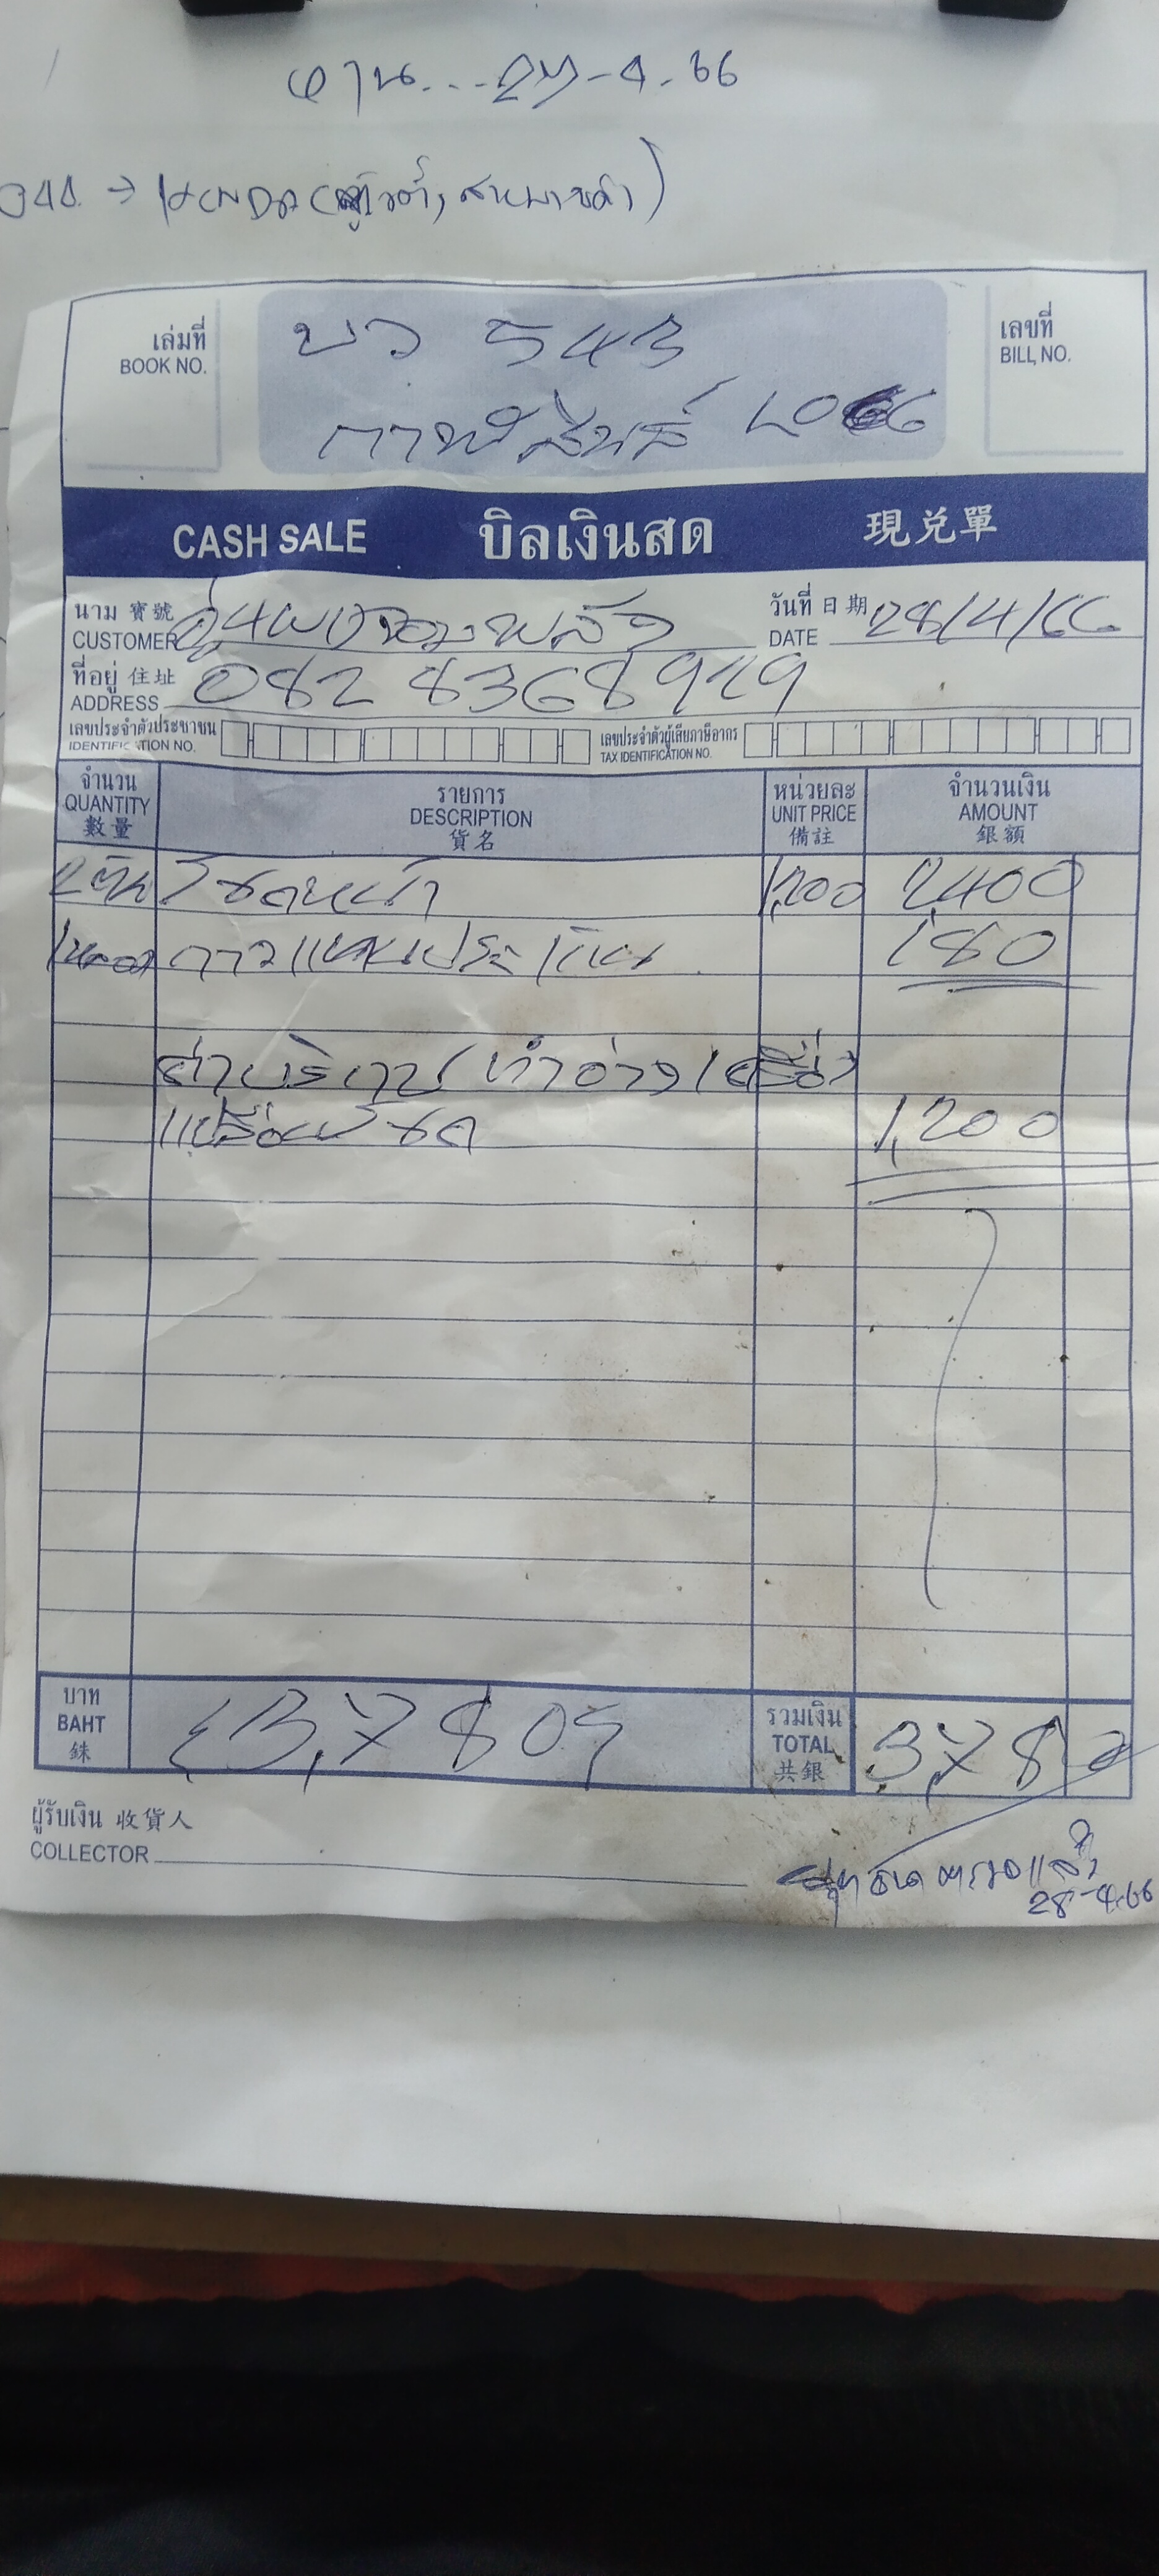 งาน... 27-4-66
เล่มที่
BOOK NO.
บว 543
กาฬสินธุ์ LO66
เลขที่
BILL NO.
CASH SALE บิลเงินสด 現兑單
นาม 寶號
CUSTOMER
วันที่ 日期
DATE 28/4/66
ที่อยู่ 住址
ADDRESS 082 8368929
เลขประจำตัวประชาชน
IDENTIFICATION NO.
เลขประจำตัวผู้เสียภาษีอากร
TAX IDENTIFICATION NO.
จำนวน
QUANTITY
數量
รายการ
DESCRIPTION
貨名
หน่วยละ
UNIT PRICE
備註
จำนวนเงิน
AMOUNT
銀額
2ตัว โชคหน้า 1,200 2400
1หลอด กาวแดงประเก็น 180
ค่าบริการ ทำอ่างเครื่อง
เปลี่ยนโชค 1,200
บาท
BAHT
銖
3,780
รวมเงิน
TOTAL
共銀
3,780
ผู้รับเงิน 收貨人
COLLECTOR
ตรวจแล้ว
28-4-66